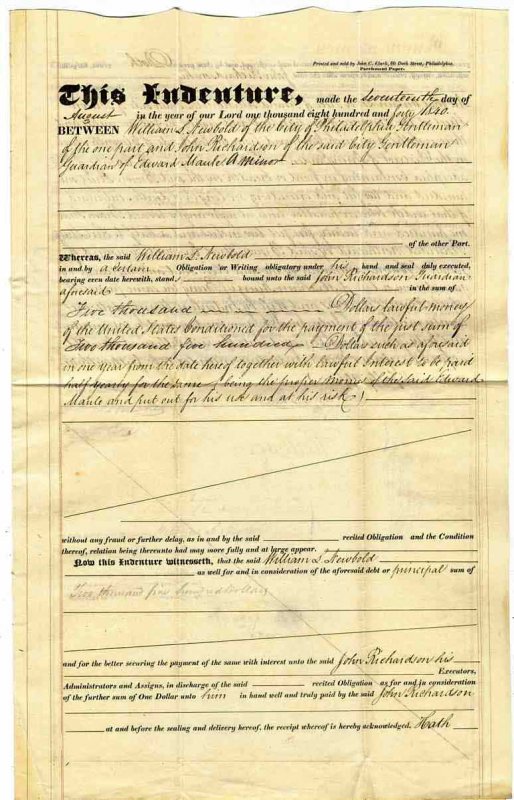 Printed and sold by John C. Clark, 60 Dock Street, Philadelphia.
Parchment Paper.
This Indenture, made the seventeenth day of
August in the year of our Lord one thousand eight hundred and forty 1840.
BETWEEN William S. Newbold of the City of Philadelphia Gentleman
of the one part and John Richardson of the said City Gentleman
Guardian of Edward Maule A minor
of the other Part.
Whereas, the said William S. Newbold
in and by a certain Obligation or Writing obligatory under his hand and seal duly executed,
bearing even date herewith, stand s bound unto the said John Richardson Guardian
aforesaid in the sum of
Five thousand Dollars lawful money
of the United States Conditioned for the payment of the just sum of
Two thousand five hundred Dollars such as aforesaid
in one year from the date hereof together with lawful Interest to be paid
half yearly for the same, being the proper money of the said Edward
Maule and put out for his use and at his risk)
without any fraud or further delay, as in and by the said recited Obligation and the Condition
thereof, relation being thereunto had may more fully and at large appear.
Now this Indenture witnesseth, that the said William S. Newbold
as well for and in consideration of the aforesaid debt or principal sum of
Two thousand five hundred dollars
and for the better securing the payment of the same with interest unto the said John Richardson his
Executors,
Administrators and Assigns, in discharge of the said recited Obligation as for and in consideration
of the further sum of One Dollar unto him in hand well and truly paid by the said John Richardson
at and before the sealing and delivery hereof, the receipt whereof is hereby acknowledged, Hath